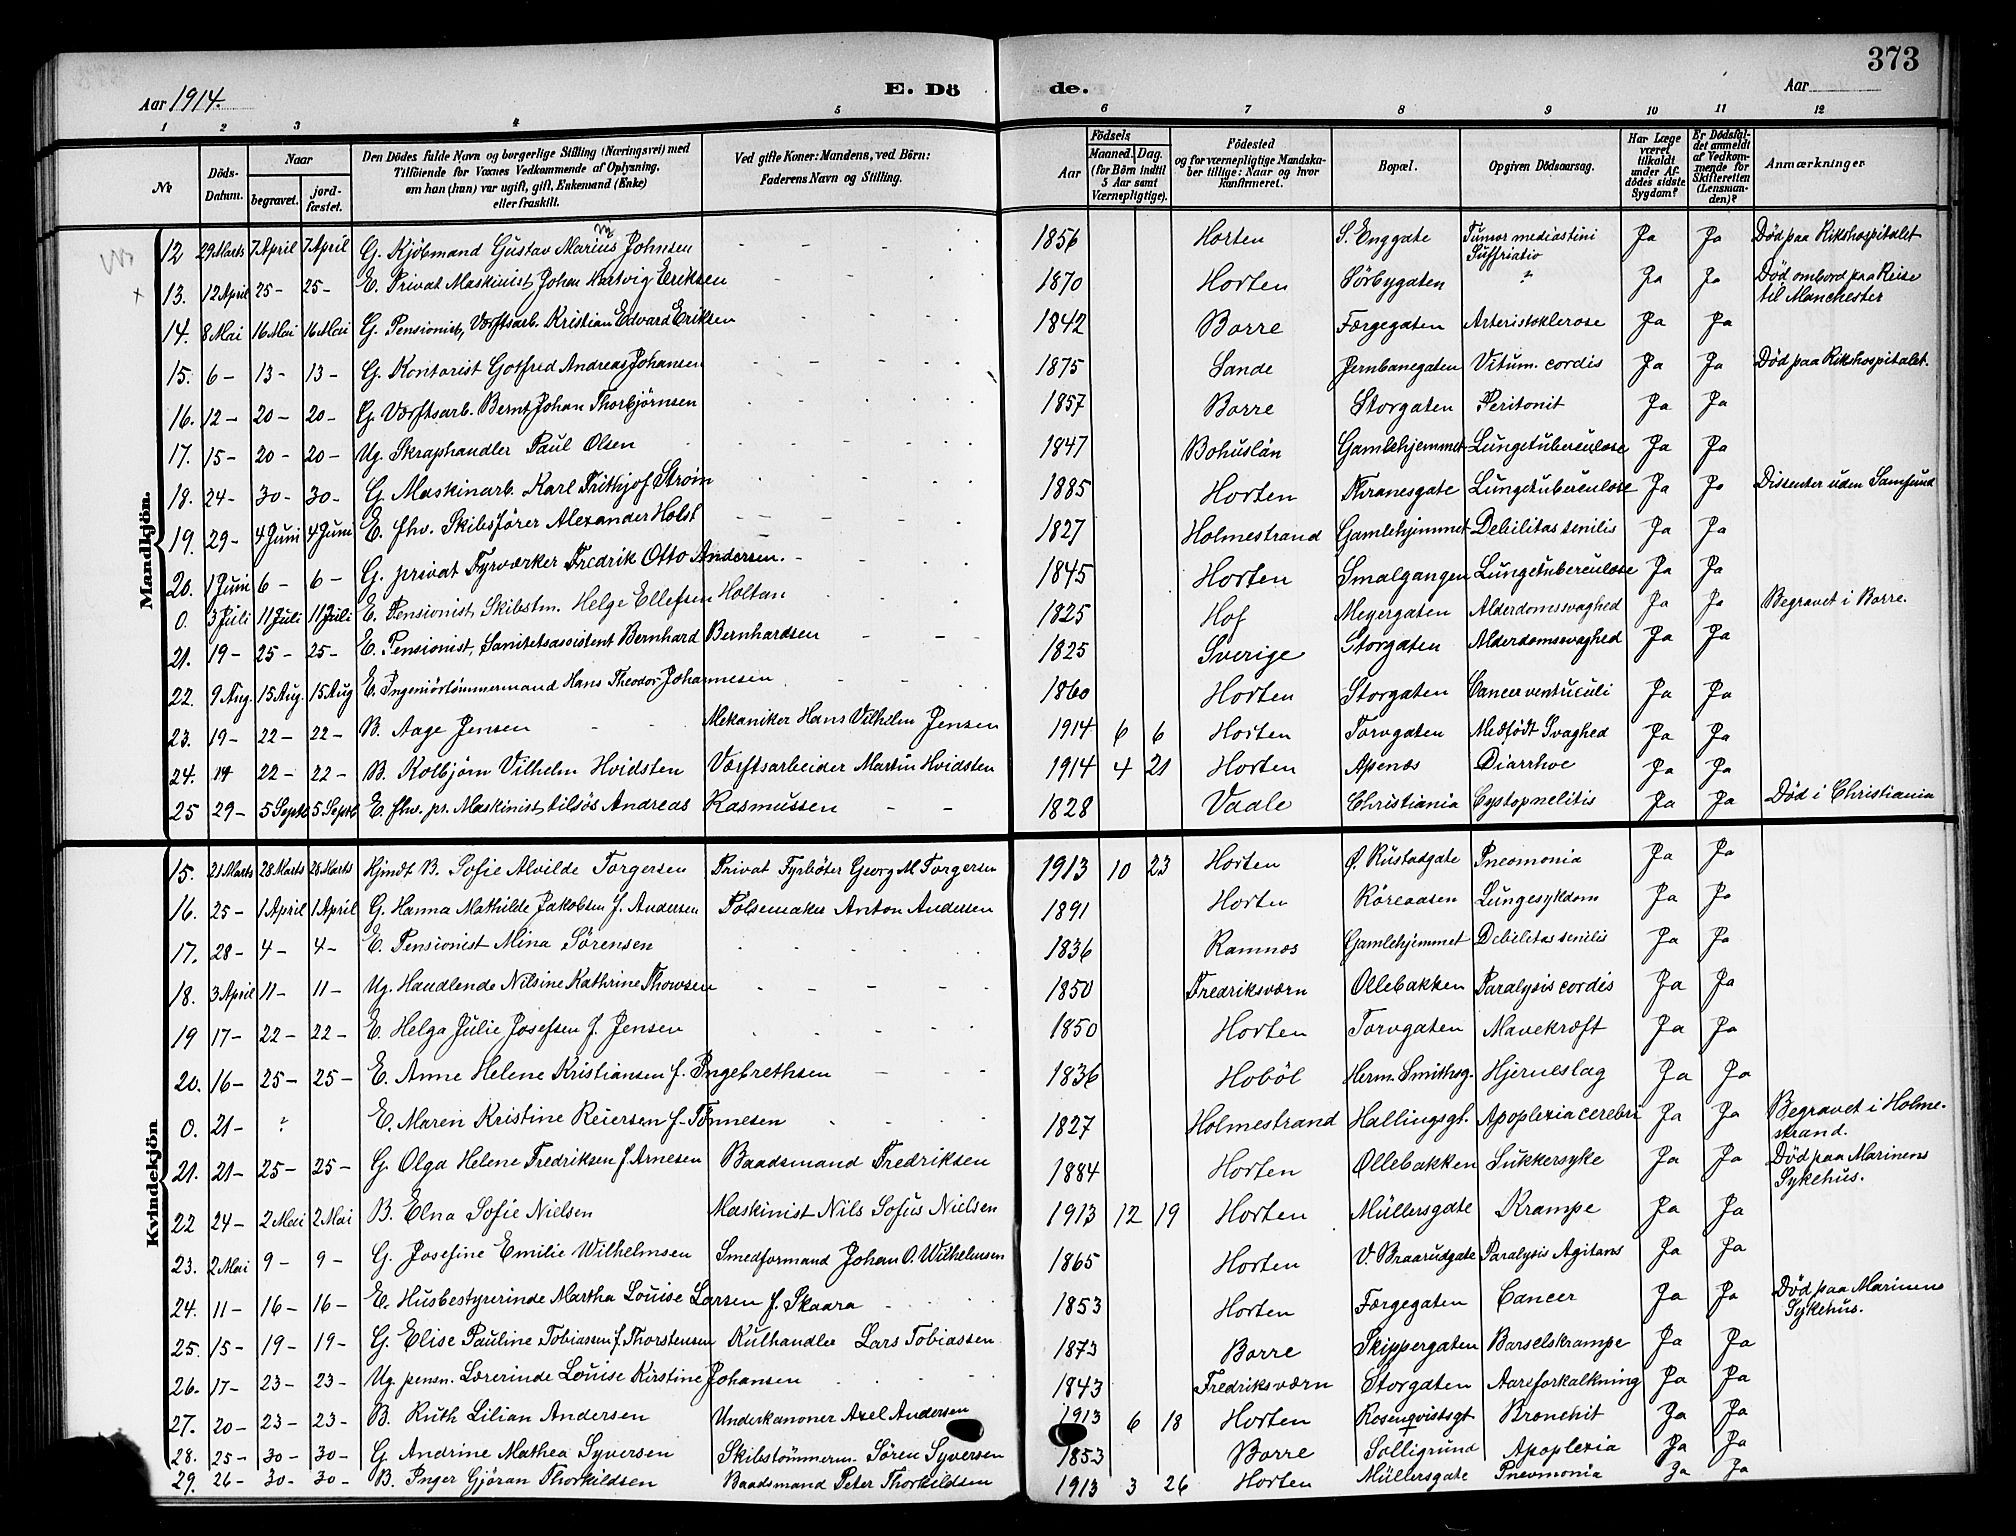 373
Aar 1914.
E. Dö de.
Aar
1 2 3 4 5 6 7 8 9 10 11 12
No
Döds-Datum.
Naar
begravet.
jord-fæstet.
Den Dödes fulde Navn og borgerlige Stilling (Næringsvei) med Tilföiende for Voxnes Vedkommende af Oplysning, om han (hun) var ugift, gift, Enkemand (Enke) eller fraskilt.
Ved gifte Koner: Mandens, ved Börn: Faderens Navn og Stilling.
Födsels
Aar
Maaned. Dag. (for Börn indtil 5 Aar samt Værnepligtige).
Födested og for værnepligtige Mandskaber tillige: Naar og hvor konfirmeret.
Bopæl.
Opgiven Dödsaarsag.
Har Læge været tilkaldt under Afdödes sidste Sygdom?
Er Dödsfaldet anmeldt af Vedkommende for Skifteretten (Lensmanden)?
Anmærkninger
Mandkjön.
12 29 Marts 7 April 7 April G. Kjöbmand Gustav Marius Johnsen - - - 1856 Horten S. Enggate Tumor mediastini Suffriatio Ja Ja Död paa Rikshospitalet
13. 12 April 25- 25- E. Privat Maskinist Johan Hartvig Eriksen 1870 Horten Sörbygaten ? Ja Ja Död ombord paa Reise til Manchester
14. 8 Mai 16 Mai 16 Mai G. Pensionist, Værftsarb. Kristian Edvard Eriksen 1842 Borre Færgegaten Arteriosklerose Ja Ja
15. 6- 13- 13- G. Kontorist Gotfred Andreas Johansen 1875 Sande Jernbanegaten Vitum cordis Ja Ja Död paa Rikshospitalet.
16. 12- 20- 20- G. Værftsarb. Bernt Johan Thorbjörnsen 1857 Borre Storgaten Peritonit Ja Ja
17. 15- 20- 20- Ug. Skraphandler Paul Olsen 1847 Bohuslän Gamlehjemmet Lungetuberculose Ja Ja
18. 24- 30- 30- G. Maskinarb. Karl Frithjof Ström 1885 Horten Thranesgate Lungetuberculose Ja Ja Dissenter uden Samfund
19. 29- 4 Juni 4 Juni E. fhv. Skibsförer Alexander Holst 1827 Holmestrand Gamlehjemmet Debilitas senilis Ja Ja
20. 1 Juni 6- 6- G. privat Fyrværker Fredrik Otto Andersen. 1845 Horten Smalgangen Lungetuberculose Ja Ja
0. 3 Juli 11 Juli 11 Juli E. Pensionist, Skibstm. Helge Ellefsen Holtan 1825 Hof Meyergaten Alderdomssvaghed Ja Ja Begravet i Borre.
21. 19- 25- 25- E. Pensionist, Sanitetsassistent Bernhard Bernhardsen 1825 Sverige Storgaten Alderdomssvaghed Ja Ja
22. 9 Aug. 15 Aug. 15 Aug E. Ingeniörtömmermand Hans Theodor Johannesen 1860 Horten Storgaten Cancer ventriculi Ja Ja
23. 19- 22- 22- B. Aage Jensen Mekaniker Hans Vilhelm Jensen 1914 6 6 Horten Torvgaten Medfödt Svaghed Ja Ja
24. 19 22- 22- B. Kolbjörn Vilhelm Hvidsten Værftsarbeider Martin Hvidsten 1914 4 21 Horten Apenæs Diarrhoe Ja Ja
25 29- 5 Septb 5 Septb E. fhv. pr. Maskinist, tilsös Andreas Rasmussen 1828 Vaale Christiania Cystopnelitis Ja Ja Död i Christiania
Kvindekjön
15. 21 Marts 28 Marts 28 Marts Hjmdt B. Sofie Alvilde Torgersen Privat Fyrböter Georg M Torgersen 1913 10 23 Horten Ø. Rustadgate Pneomonia Ja Ja
16. 25- 1 April 1 April G. Hanna Mathilde Jakobsen f. Andersen Pölsemaker Anton Andersen 1891 Horten Röreaasen Lungesykdom Ja Ja
17. 28- 4- 4- E. Pensionist Mina Sörensen 1836 Ramnæs Gamlehjemmet Debilitas senilis Ja Ja
18. 3 April 11- 11- Ug. Handlende Nilsine Kathrine Thowsen 1850 Fredriksværn Ollebakken Paralysis cordis Ja Ja
19 17- 22- 22- E. Helga Julie Josefsen f. Jensen 1850 Horten Torvgaten Mavekræft Ja Ja
20. 16- 25- 25- E. Anne Helene Kristiansen f. Ingebrethsen 1836 Hoböl Herm. Smithsg. Hjerneslag Ja Ja
0. 21- ? E. Maren Kristine Reiersen f. Tönnesen 1827 Holmestrand Hallingsgt. Apoplexia cerebri Ja Ja Begravet i Holmestrand.
21. 21- 25- 25- G. Olga Helene Fredriksen f. Arnesen Baadsmand Fredriksen 1884 Horten Ollebakken Sukkersyke Ja Ja Död paa Marinens Sykehus.
22 24- 2 Mai 2 Mai B. Elna Sofie Nielsen Maskinist Nils Sofus Nielsen 1913 12 19 Horten Müllersgate Krampe Ja Ja
23. 2 Mai 9- 9- G. Josefine Emilie Wilhelmsen Smedformand Johan O. Wilhelmsen 1865 Horten V. Braarudgate Paralysis Agitans Ja Ja
24. 11- 16- 16- E. Husbestyrerinde Martha Louise Larsen f. Skaara 1853 Horten Færgegaten Cancer Ja Ja Död paa Marinens Sykehus.
25. 15- 19- 19- G. Elise Pauline Tobiassen f. Thorstensen Kulhandler Lars Tobiassen 1873 Borre Skippergaten Barselskrampe Ja Ja
26. 17- 23- 23- Ug. pensn. Lærerinde Louise Kirstine Johansen 1843 Fredriksværn Storgaten Aareforkalkning Ja Ja
27. 20- 23- 23- B. Ruth Lilian Andersen Underkanoner Axel Andersen 1913 6 18 Horten Rosenqvistsgt Bronchit Ja Ja
28. 25- 30- 30- G. Andrine Mathea Syversen Skibstömmerm. Sören Syversen 1853 Borre Solligrund Apoplexia Ja Ja
29. 26- 30- 30- B. Inger Gjöran Thorkildsen Baadsmand Peter Thorkildsen 1913 3 26 Horten Müllersgate Pneumonia Ja Ja